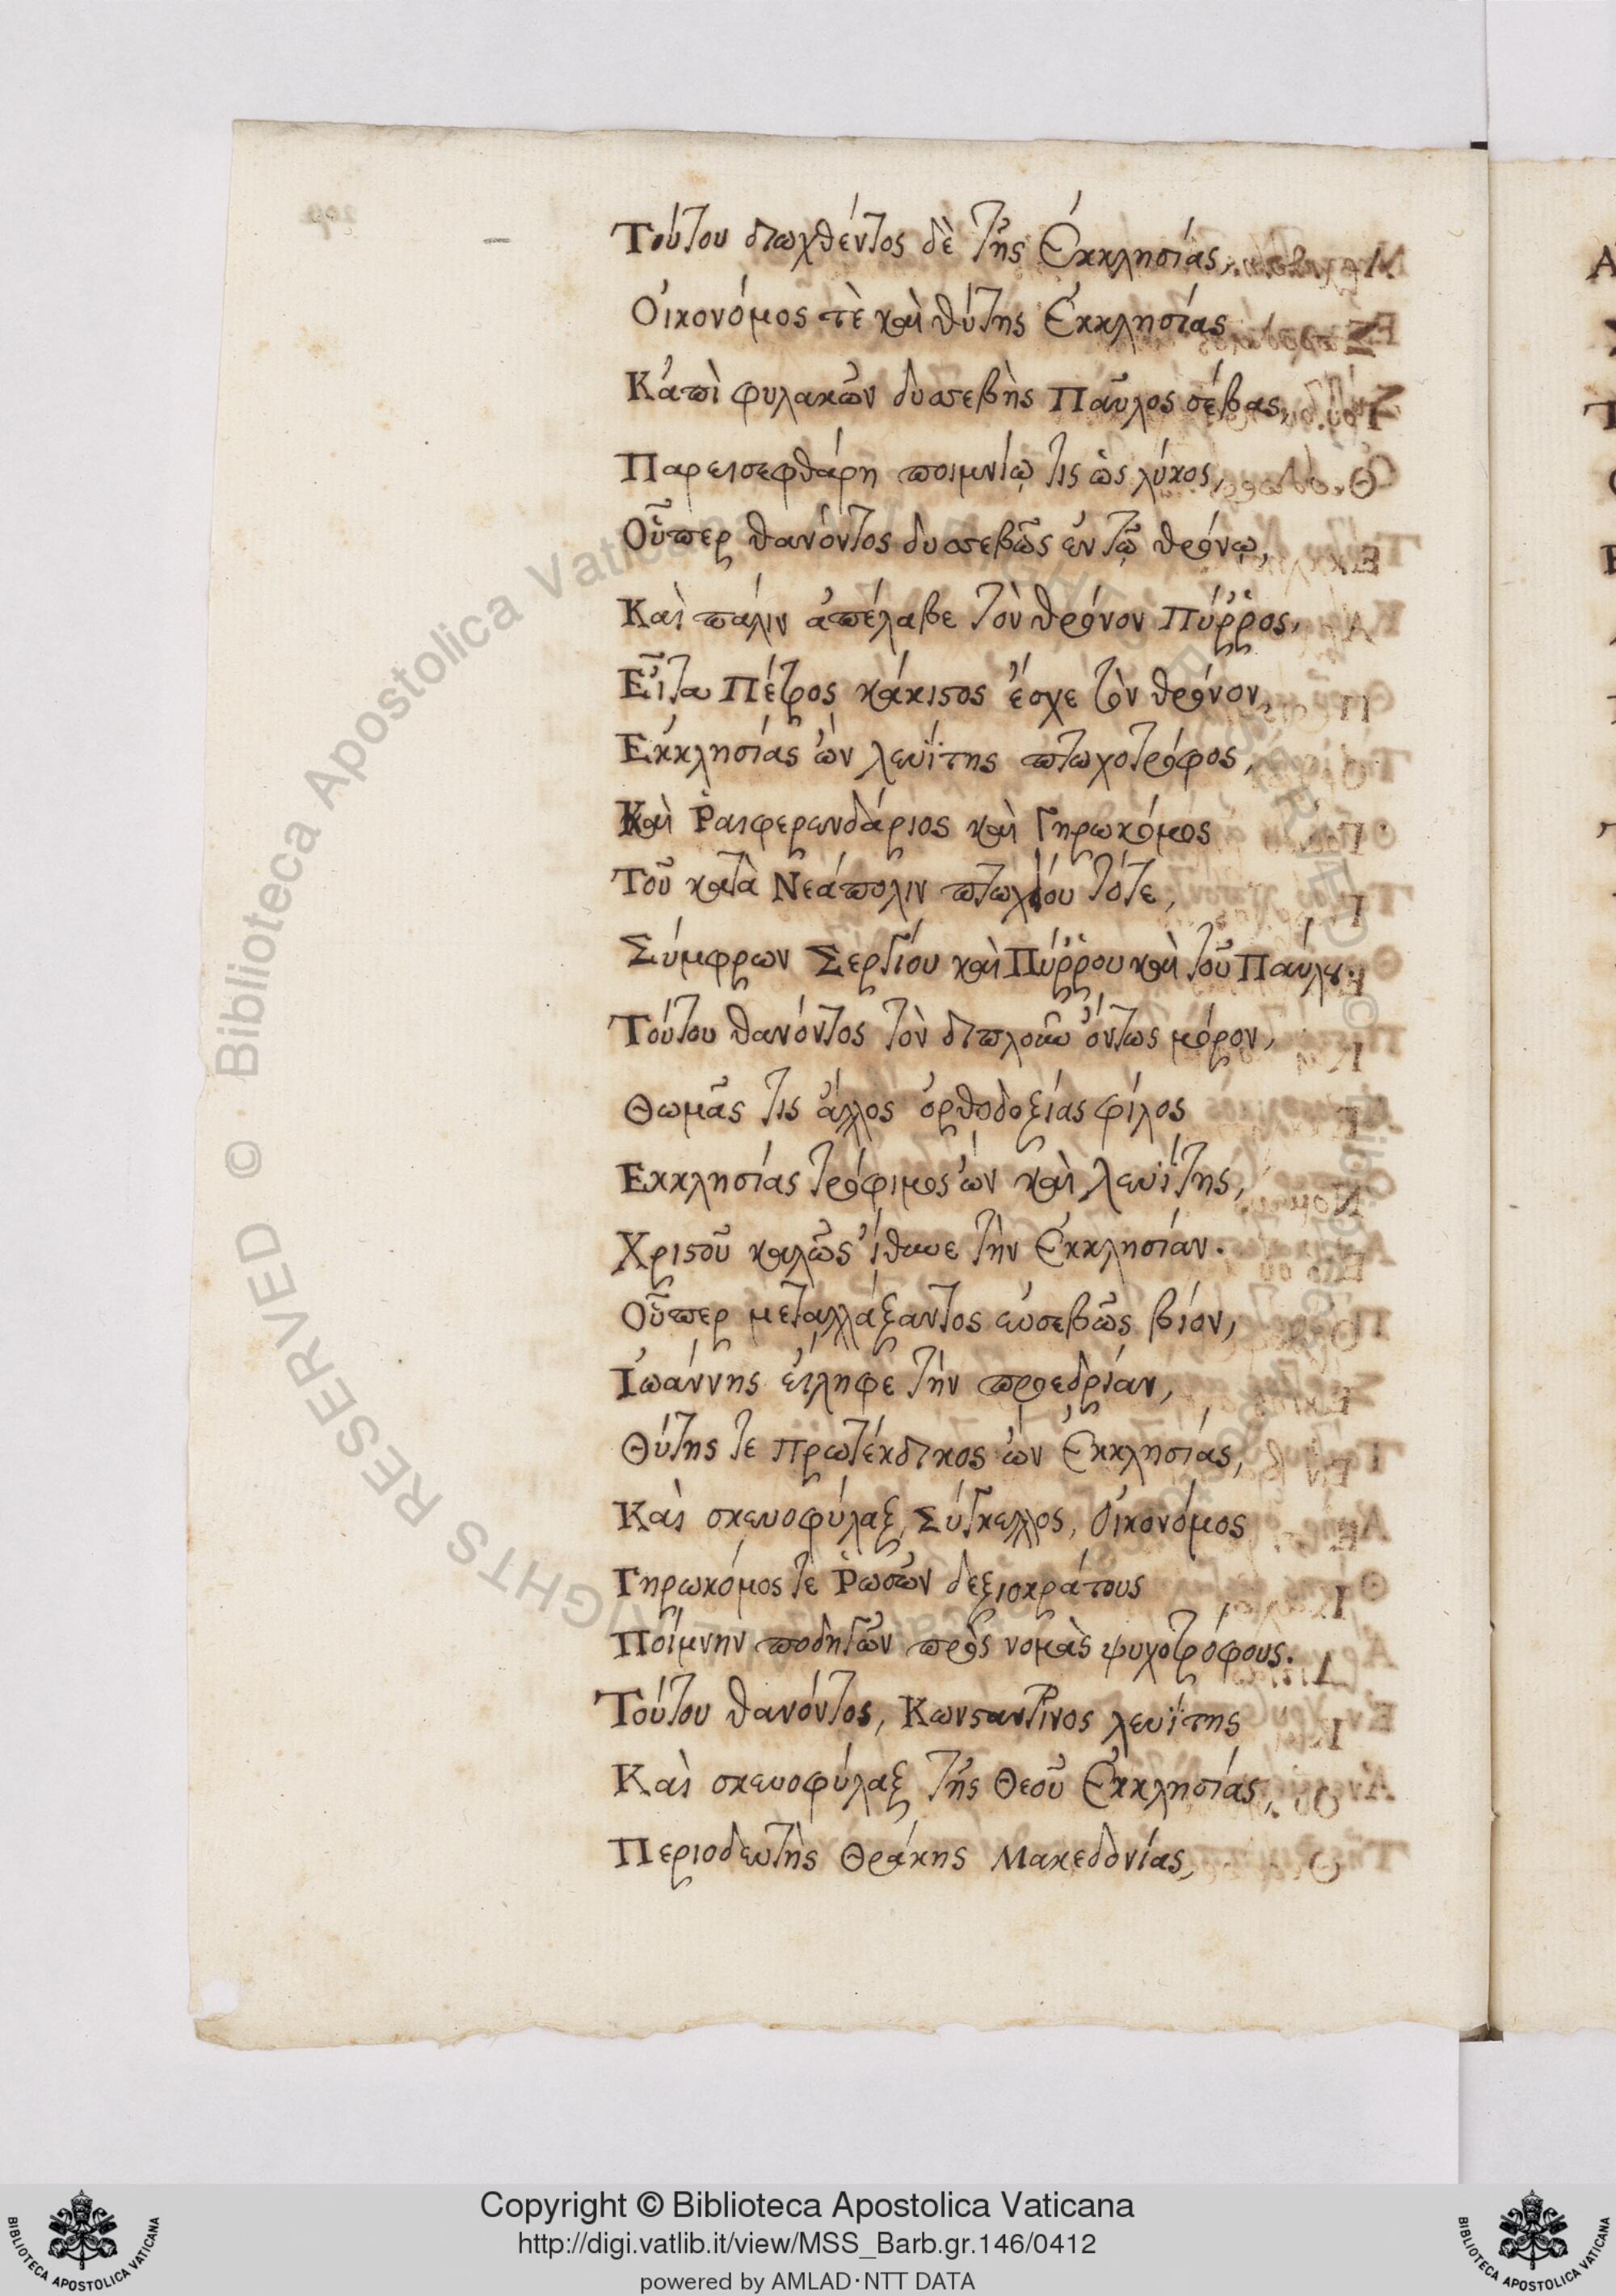 Τούτου διωχθέντος δὲ τῆς Ἐκκλησίας,
Οἰκονόμος τὲ καὶ θύτης Ἐκκλησίας
Κἀπὶ φυλακῶν δυσσεβὴς Παῦλος σέβας,
Παρεισεφθάρη ποιμνίῳ τις ὡς λύκος,
Οὗπερ θανόντος δυσσεβῶς ἐν τῷ θρόνῳ,
Καὶ πάλιν ἀπέλαβε τὸν θρόνον Πύῤῥος,
Εἶτα Πέτρος κάκιστος ἔσχε τὸν θρόνον,
Εκκλησίας ὢν λευΐτης πτωχοτρόφος,
Καὶ Ῥαιφερενδάριος καὶ Γηρωκόμος
Τοῦ κατὰ Νεάπολιν πτωχίου τότε,
Σύμφρων Σεργίου καὶ Πύῤῥου καὶ τοῦ Παύλου.
Τούτου θανόντος τὸν διπλοῦν ὄντως μόρον,
Θωμᾶς τις ἄλλος ὀρθοδοξίας φίλος
Εκκλησίας τρόφιμος ὢν καὶ λευΐτης,
Χριστοῦ καλῶς ἴθυνε τὴν Ἐκκλησίαν.
Οὗπερ μεταλλάξαντος εὐσεβῶς βίον,
Ἰωάννης εἴληφε τὴν προεδρίαν,
Θύτης τε πρωτέκδικος ὢν Ἐκκλησίας,
Καὶ σκευοφύλαξ, Σύγκελλος, Οἰκονόμος
Γηρωκόμος τε Ῥωσῶν δεξιοκράτους
Ποίμνην ποδηγῶν πρὸς νομὰς ψυχοτρόφους.
Τούτου θανόντος, Κωνσταντῖνος λευΐτης
Καὶ σκευοφύλαξ τῆς Θεοῦ Ἐκκλησίας,
Περιοδευτὴς Θράκης Μακεδονίας,
Copyright © Biblioteca Apostolica Vaticana
http://digi.vatlib.it/view/MSS_Barb.gr.146/0412
powered by AMLAD·NTT DATA